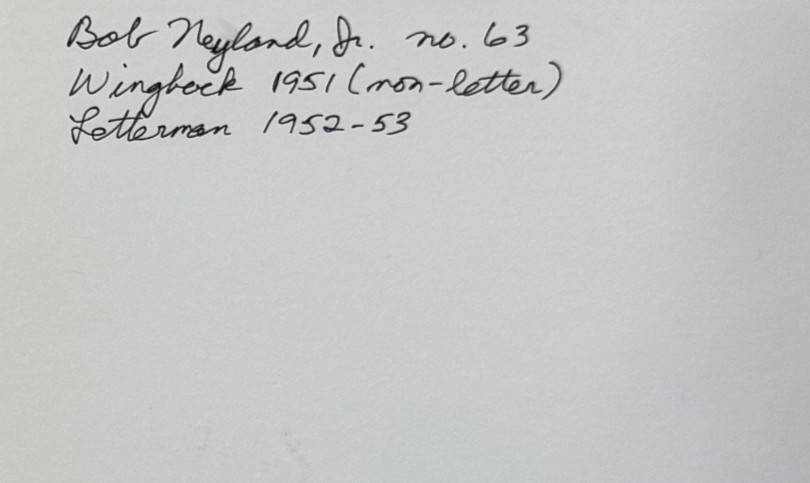 Bob Neyland, Jr. no. 63
Wingback 1951 (non-letter)
Letterman 1952-53